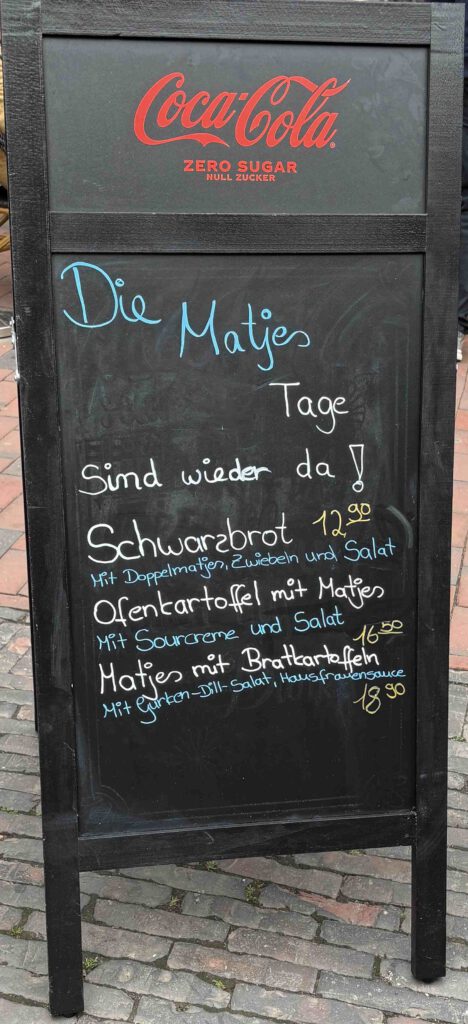 Coca-Cola
ZERO SUGAR
NULL ZUCKER
Die Matjes
Tage
Sind wieder da!
Schwarzbrot 12,90
Mit Doppelmatjes, Zwiebeln und Salat
Ofenkartoffel mit Matjes
Mit Sourcreme und Salat 16 50
Matjes mit Bratkartoffeln
Mit Gurken-Dill-Salat, Hausfrauensauce
18 90